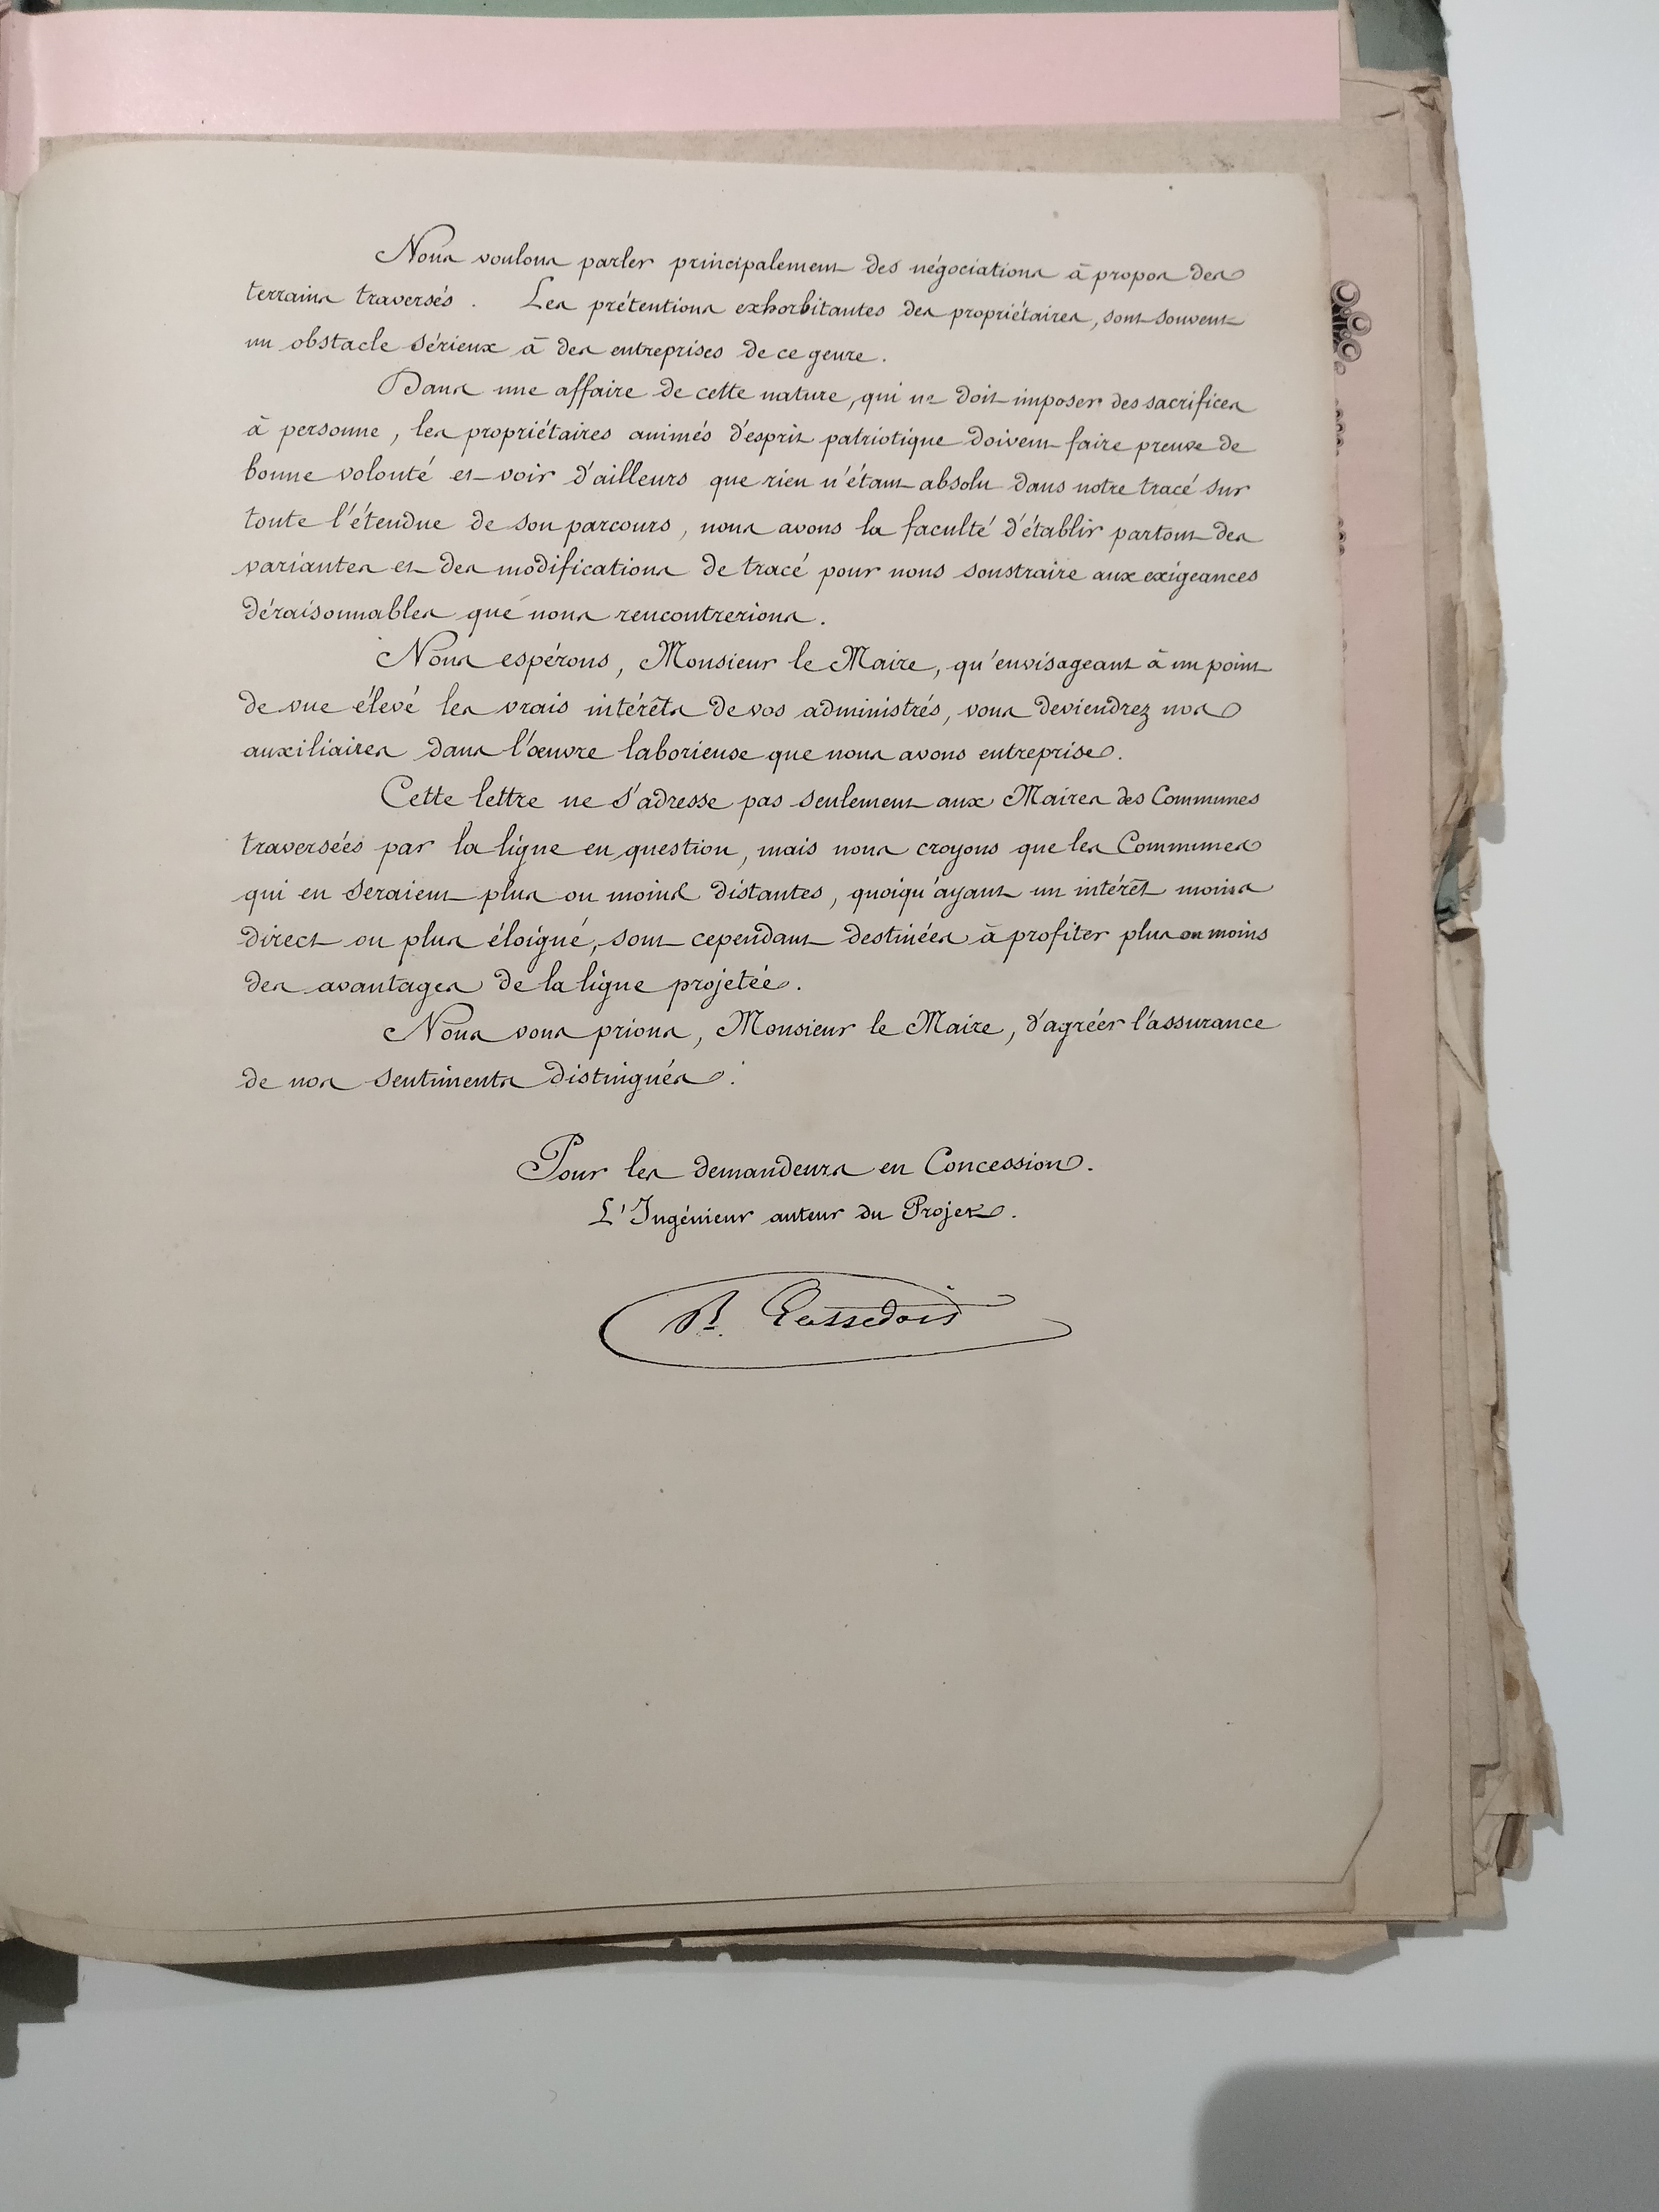 Nous voulons parler principalement des négociations à propos des
terrains traversés. Les prétentions exhorbitantes des propriétaires, sont souvent
un obstacle sérieux à des entreprises de ce genre.
Dans une affaire de cette nature, qui ne doit imposer des sacrifices
à personne, les propriétaires animés d'esprit patriotique doivent faire preuve de
bonne volonté et voir d'ailleurs que rien n'étant absolu dans notre tracé sur
toute l'étendue de son parcours, nous avons la faculté d'établir partout des
variantes et des modifications de tracé pour nous soustraire aux exigeances
déraisonnables que nous rencontrerions.
Nous espérons, Monsieur le Maire, qu'envisageant à un point
de vue élevé les vrais intérêts de vos administrés, vous deviendrez nos
auxiliaires dans l'œuvre laborieuse que nous avons entreprise.
Cette lettre ne s'adresse pas seulement aux Maires des Communes
traversées par la ligne en question, mais nous croyons que les Communes
qui en seraient plus ou moins distantes, quoiqu'ayant un intérêt moins
direct ou plus éloigné, sont cependant destinées à profiter plus ou moins
des avantages de la ligne projetée.
Nous vous prions, Monsieur le Maire, d'agréer l'assurance
de nos sentiments distingués.
Pour les demandeurs en Concession.
L'Ingénieur auteur du Projet.